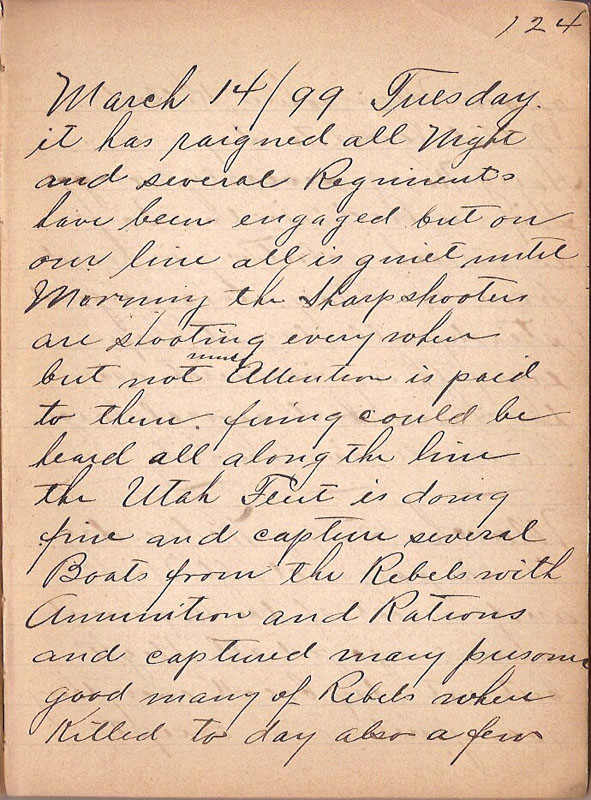 124
March 14/99 Tuesday.
it has raigned all Night
and several Regiments
have been engaged but on
our line all is quiet until
Morning the Sharpshooters
are shooting everywher
much
but not Attention is paid
to them. firing could be
heard all along the line
the Utah Fleet is doing
fine and capture several
Boats from the Rebels with
Amunition and Rations
and captured many
good many of Rebels where
Killed to day also a few